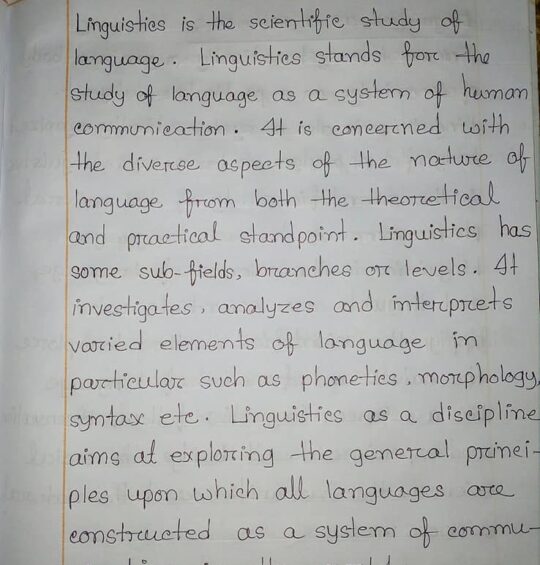 Linguistics is the scientific study of
language. Linguistics stands for the
study of language as a system of human
communication. It is concerned with
the diverse aspects of the nature of
language from both the theoretical
and practical standpoint. Linguistics has
some sub-fields, branches or levels. It
investigates, analyzes and interprets
varied elements of language in
particular such as phonetics, morphology,
syntax etc. Linguistics as a discipline
aims at exploring the general princi-
ples upon which all languages are
constructed as a system of commu-